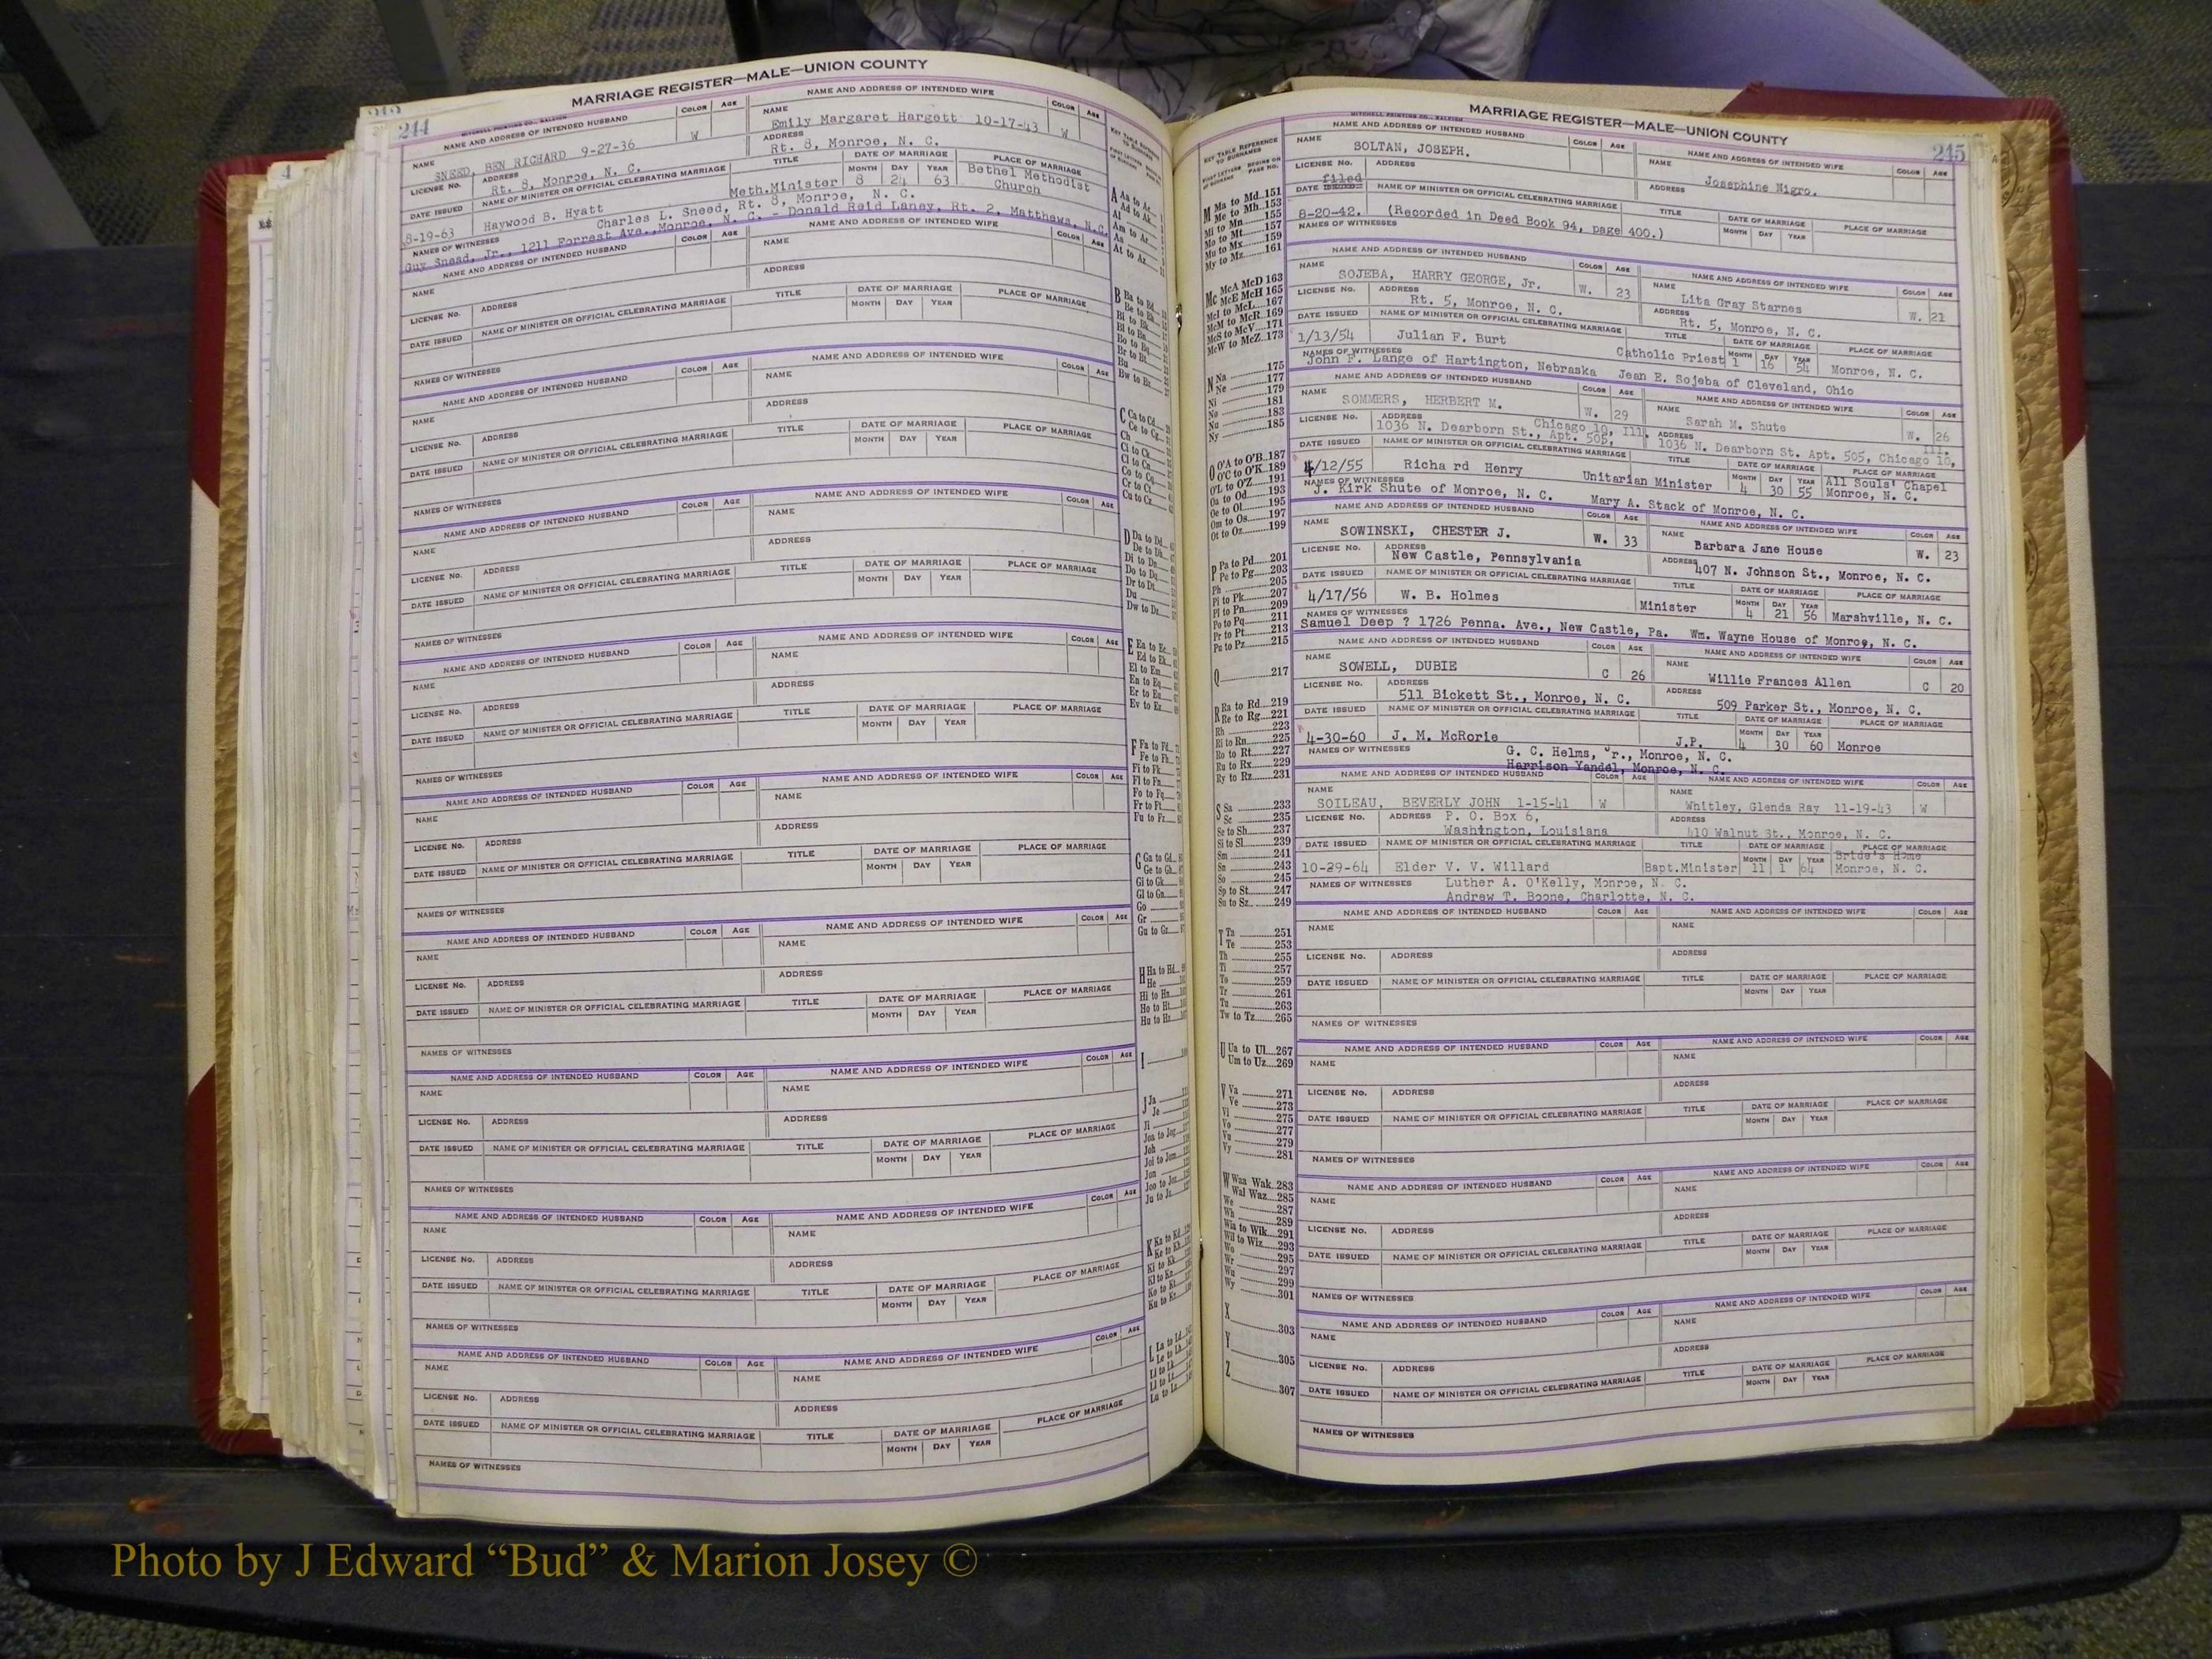 244
MARRIAGE REGISTER—MALE—UNION COUNTY
MITCHELL PRINTING CO., RALEIGH
NAME AND ADDRESS OF INTENDED HUSBAND COLOR AGE NAME AND ADDRESS OF INTENDED WIFE COLOR AGE
NAME SNEED, BEN RICHARD 9-27-36 W NAME Emily Margaret Hargett 10-17-43 W
LICENSE No. ADDRESS Rt. 8, Monroe, N. C. ADDRESS Rt. 8, Monroe, N. C.
DATE ISSUED NAME OF MINISTER OR OFFICIAL CELEBRATING MARRIAGE TITLE DATE OF MARRIAGE PLACE OF MARRIAGE
MONTH DAY YEAR
8-19-63 Haywood B. Hyatt Meth.Minister 8 24 63 Bethel Methodist Church
NAMES OF WITNESSES Charles L. Sneed, Rt. 8, Monroe, N. C.
Guy Snead, Jr., 1211 Forrest Ave., Monroe, N. C. - Donald Reid Laney, Rt. 2, Matthews, N.C.
NAME AND ADDRESS OF INTENDED HUSBAND COLOR AGE NAME AND ADDRESS OF INTENDED WIFE COLOR AGE
NAME NAME
LICENSE No. ADDRESS ADDRESS
DATE ISSUED NAME OF MINISTER OR OFFICIAL CELEBRATING MARRIAGE TITLE DATE OF MARRIAGE PLACE OF MARRIAGE
MONTH DAY YEAR
NAMES OF WITNESSES
NAME AND ADDRESS OF INTENDED HUSBAND COLOR AGE NAME AND ADDRESS OF INTENDED WIFE COLOR AGE
NAME NAME
LICENSE No. ADDRESS ADDRESS
DATE ISSUED NAME OF MINISTER OR OFFICIAL CELEBRATING MARRIAGE TITLE DATE OF MARRIAGE PLACE OF MARRIAGE
MONTH DAY YEAR
NAMES OF WITNESSES
NAME AND ADDRESS OF INTENDED HUSBAND COLOR AGE NAME AND ADDRESS OF INTENDED WIFE COLOR AGE
NAME NAME
LICENSE No. ADDRESS ADDRESS
DATE ISSUED NAME OF MINISTER OR OFFICIAL CELEBRATING MARRIAGE TITLE DATE OF MARRIAGE PLACE OF MARRIAGE
MONTH DAY YEAR
NAMES OF WITNESSES
NAME AND ADDRESS OF INTENDED HUSBAND COLOR AGE NAME AND ADDRESS OF INTENDED WIFE COLOR AGE
NAME NAME
LICENSE No. ADDRESS ADDRESS
DATE ISSUED NAME OF MINISTER OR OFFICIAL CELEBRATING MARRIAGE TITLE DATE OF MARRIAGE PLACE OF MARRIAGE
MONTH DAY YEAR
NAMES OF WITNESSES
NAME AND ADDRESS OF INTENDED HUSBAND COLOR AGE NAME AND ADDRESS OF INTENDED WIFE COLOR AGE
NAME NAME
LICENSE No. ADDRESS ADDRESS
DATE ISSUED NAME OF MINISTER OR OFFICIAL CELEBRATING MARRIAGE TITLE DATE OF MARRIAGE PLACE OF MARRIAGE
MONTH DAY YEAR
NAMES OF WITNESSES
NAME AND ADDRESS OF INTENDED HUSBAND COLOR AGE NAME AND ADDRESS OF INTENDED WIFE COLOR AGE
NAME NAME
LICENSE No. ADDRESS ADDRESS
DATE ISSUED NAME OF MINISTER OR OFFICIAL CELEBRATING MARRIAGE TITLE DATE OF MARRIAGE PLACE OF MARRIAGE
MONTH DAY YEAR
NAMES OF WITNESSES
NAME AND ADDRESS OF INTENDED HUSBAND COLOR AGE NAME AND ADDRESS OF INTENDED WIFE COLOR AGE
NAME NAME
LICENSE No. ADDRESS ADDRESS
DATE ISSUED NAME OF MINISTER OR OFFICIAL CELEBRATING MARRIAGE TITLE DATE OF MARRIAGE PLACE OF MARRIAGE
MONTH DAY YEAR
NAMES OF WITNESSES
NAME AND ADDRESS OF INTENDED HUSBAND COLOR AGE NAME AND ADDRESS OF INTENDED WIFE COLOR AGE
NAME NAME
LICENSE No. ADDRESS ADDRESS
DATE ISSUED NAME OF MINISTER OR OFFICIAL CELEBRATING MARRIAGE TITLE DATE OF MARRIAGE PLACE OF MARRIAGE
MONTH DAY YEAR
NAMES OF WITNESSES
NAME AND ADDRESS OF INTENDED HUSBAND COLOR AGE NAME AND ADDRESS OF INTENDED WIFE COLOR AGE
NAME NAME
LICENSE No. ADDRESS ADDRESS
DATE ISSUED NAME OF MINISTER OR OFFICIAL CELEBRATING MARRIAGE TITLE DATE OF MARRIAGE PLACE OF MARRIAGE
MONTH DAY YEAR
NAMES OF WITNESSES
KEY TABLE REFERENCE
TO SURNAMES
M Ma to Md 151
Me to Mh 153
Mi to Mn 155
Mo to Mt 157
Mu to Mx 159
My to Mz 161
Mc McA McD 163
McE McH 165
McI to McL 167
McM to McR 169
McS to McV 171
McW to McZ 173
N Na 175
Ne 177
Ni 179
No 181
Nu 183
Ny 185
O O'A to O'B 187
O'C to O'K 189
O'L to O'Z 191
Oa to Od 193
Oe to Ol 195
Om to Os 197
Ot to Oz 199
P Pa to Pd 201
Pe to Pg 203
Ph 205
Pi to Pk 207
Pl to Pn 209
Po to Pq 211
Pr to Pt 213
Pu to Pz 215
Q 217
R Ra to Rd 219
Re to Rg 221
Rh 223
Ri to Rn 225
Ro to Rt 227
Ru to Rx 229
Ry to Rz 231
S Sa 233
Sc 235
Se to Sh 237
Si to Sl 239
Sm 241
Sn 243
So 245
Sp to St 247
Su to Sz 249
T Ta 251
Te 253
Th 255
Ti 257
To 259
Tr 261
Tu 263
Tw to Tz 265
U Ua to Ul 267
Um to Uz 269
V Va 271
Ve 273
Vi 275
Vo 277
Vu 279
Vy 281
W Waa Wak 283
Wal Waz 285
We 287
Wh 289
Wia to Wik 291
Wil to Wiz 293
Wo 295
Wr 297
Wu 299
Wy 301
X 303
Y 305
Z 307
245
MARRIAGE REGISTER—MALE—UNION COUNTY
MITCHELL PRINTING CO., RALEIGH
NAME AND ADDRESS OF INTENDED HUSBAND COLOR AGE NAME AND ADDRESS OF INTENDED WIFE COLOR AGE
NAME SOLTAN, JOSEPH. NAME Josephine Nigro.
LICENSE No. ADDRESS ADDRESS
filed
DATE ISSUED NAME OF MINISTER OR OFFICIAL CELEBRATING MARRIAGE TITLE DATE OF MARRIAGE PLACE OF MARRIAGE
MONTH DAY YEAR
8-20-42. (Recorded in Deed Book 94, page 400.)
NAMES OF WITNESSES
NAME AND ADDRESS OF INTENDED HUSBAND COLOR AGE NAME AND ADDRESS OF INTENDED WIFE COLOR AGE
NAME SOJEBA, HARRY GEORGE, Jr. W. 23 NAME Lita Gray Starnes W. 21
LICENSE No. ADDRESS Rt. 5, Monroe, N. C. ADDRESS Rt. 5, Monroe, N. C.
DATE ISSUED NAME OF MINISTER OR OFFICIAL CELEBRATING MARRIAGE TITLE DATE OF MARRIAGE PLACE OF MARRIAGE
MONTH DAY YEAR
1/13/54 Julian F. Burt Catholic Priest 1 16 54 Monroe, N. C.
NAMES OF WITNESSES
John F. Lange of Hartington, Nebraska Jean E. Sojeba of Cleveland, Ohio
NAME AND ADDRESS OF INTENDED HUSBAND COLOR AGE NAME AND ADDRESS OF INTENDED WIFE COLOR AGE
NAME SOMMERS, HERBERT M. W. 29 NAME Sarah M. Shute W. 26
LICENSE No. ADDRESS Chicago 10, Ill. ADDRESS Ill.
1036 N. Dearborn St., Apt. 505, 1036 N. Dearborn St. Apt. 505, Chicago 10,
DATE ISSUED NAME OF MINISTER OR OFFICIAL CELEBRATING MARRIAGE TITLE DATE OF MARRIAGE PLACE OF MARRIAGE
MONTH DAY YEAR
4/12/55 Richa rd Henry Unitarian Minister 4 30 55 All Souls' Chapel Monroe, N. C.
NAMES OF WITNESSES
J. Kirk Shute of Monroe, N. C. Mary A. Stack of Monroe, N. C.
NAME AND ADDRESS OF INTENDED HUSBAND COLOR AGE NAME AND ADDRESS OF INTENDED WIFE COLOR AGE
NAME SOWINSKI, CHESTER J. W. 33 NAME Barbara Jane House W. 23
LICENSE No. ADDRESS New Castle, Pennsylvania ADDRESS 407 N. Johnson St., Monroe, N. C.
DATE ISSUED NAME OF MINISTER OR OFFICIAL CELEBRATING MARRIAGE TITLE DATE OF MARRIAGE PLACE OF MARRIAGE
MONTH DAY YEAR
4/17/56 W. B. Holmes Minister 4 21 56 Marshville, N. C.
NAMES OF WITNESSES
Samuel Deep ? 1726 Penna. Ave., New Castle, Pa. Wm. Wayne House of Monroe, N. C.
NAME AND ADDRESS OF INTENDED HUSBAND COLOR AGE NAME AND ADDRESS OF INTENDED WIFE COLOR AGE
NAME SOWELL, DUBIE C 26 NAME Willie Frances Allen C 20
LICENSE No. ADDRESS 511 Bickett St., Monroe, N. C. ADDRESS 509 Parker St., Monroe, N. C.
DATE ISSUED NAME OF MINISTER OR OFFICIAL CELEBRATING MARRIAGE TITLE DATE OF MARRIAGE PLACE OF MARRIAGE
MONTH DAY YEAR
4-30-60 J. M. McRorie J.P. 4 30 60 Monroe
NAMES OF WITNESSES G. C. Helms, Jr., Monroe, N. C.
Harrison Yandel, Monroe, N. C.
NAME AND ADDRESS OF INTENDED HUSBAND COLOR AGE NAME AND ADDRESS OF INTENDED WIFE COLOR AGE
NAME SOILEAU, BEVERLY JOHN 1-15-41 W NAME Whitley, Glenda Ray 11-19-43 W
LICENSE No. ADDRESS P. O. Box 6, ADDRESS
Washington, Louisiana 410 Walnut St., Monroe, N. C.
DATE ISSUED NAME OF MINISTER OR OFFICIAL CELEBRATING MARRIAGE TITLE DATE OF MARRIAGE PLACE OF MARRIAGE
MONTH DAY YEAR Bride's Home
10-29-64 Elder V. V. Willard Bapt.Minister 11 1 64 Monroe, N. C.
NAMES OF WITNESSES Luther A. O'Kelly, Monroe, N. C.
Andrew T. Boone, Charlotte, N. C.
NAME AND ADDRESS OF INTENDED HUSBAND COLOR AGE NAME AND ADDRESS OF INTENDED WIFE COLOR AGE
NAME NAME
LICENSE No. ADDRESS ADDRESS
DATE ISSUED NAME OF MINISTER OR OFFICIAL CELEBRATING MARRIAGE TITLE DATE OF MARRIAGE PLACE OF MARRIAGE
MONTH DAY YEAR
NAMES OF WITNESSES
NAME AND ADDRESS OF INTENDED HUSBAND COLOR AGE NAME AND ADDRESS OF INTENDED WIFE COLOR AGE
NAME NAME
LICENSE No. ADDRESS ADDRESS
DATE ISSUED NAME OF MINISTER OR OFFICIAL CELEBRATING MARRIAGE TITLE DATE OF MARRIAGE PLACE OF MARRIAGE
MONTH DAY YEAR
NAMES OF WITNESSES
NAME AND ADDRESS OF INTENDED HUSBAND COLOR AGE NAME AND ADDRESS OF INTENDED WIFE COLOR AGE
NAME NAME
LICENSE No. ADDRESS ADDRESS
DATE ISSUED NAME OF MINISTER OR OFFICIAL CELEBRATING MARRIAGE TITLE DATE OF MARRIAGE PLACE OF MARRIAGE
MONTH DAY YEAR
NAMES OF WITNESSES
NAME AND ADDRESS OF INTENDED HUSBAND COLOR AGE NAME AND ADDRESS OF INTENDED WIFE COLOR AGE
NAME NAME
LICENSE No. ADDRESS ADDRESS
DATE ISSUED NAME OF MINISTER OR OFFICIAL CELEBRATING MARRIAGE TITLE DATE OF MARRIAGE PLACE OF MARRIAGE
MONTH DAY YEAR
NAMES OF WITNESSES
Photo by J Edward “Bud” & Marion Josey ©